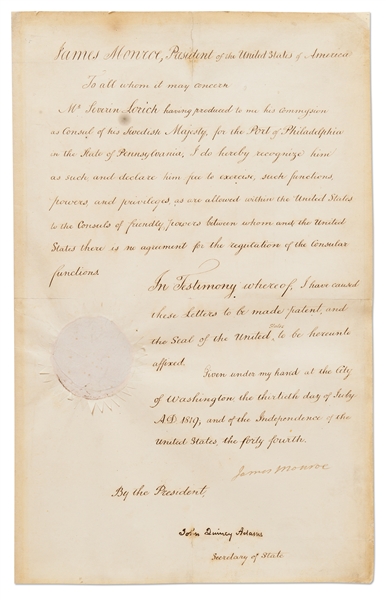 James Monroe, President of the United States of America
To all whom it may concern
Mr Severin Lorich having produced to me his Commission
as Consul of his Swedish Majesty, for the Port of Philadelphia
in the State of Pennsylvania, I do hereby recognize him
as such and declare him free to exercise, such functions,
powers, and privileges, as are allowed within the United States
to the Consuls of friendly powers between whom and the United
States there is no agreement for the regulation of the Consular
functions.
In Testimony whereof, I have caused
these Letters to be made patent, and
the Seal of the United States to be hereunto
affixed.
Given under my hand at the City
of Washington the thirtieth day of July
A.D. 1819, and of the Independence of the
United States, the forty fourth.
James Monroe
By the President,
John Quincy Adams
Secretary of State